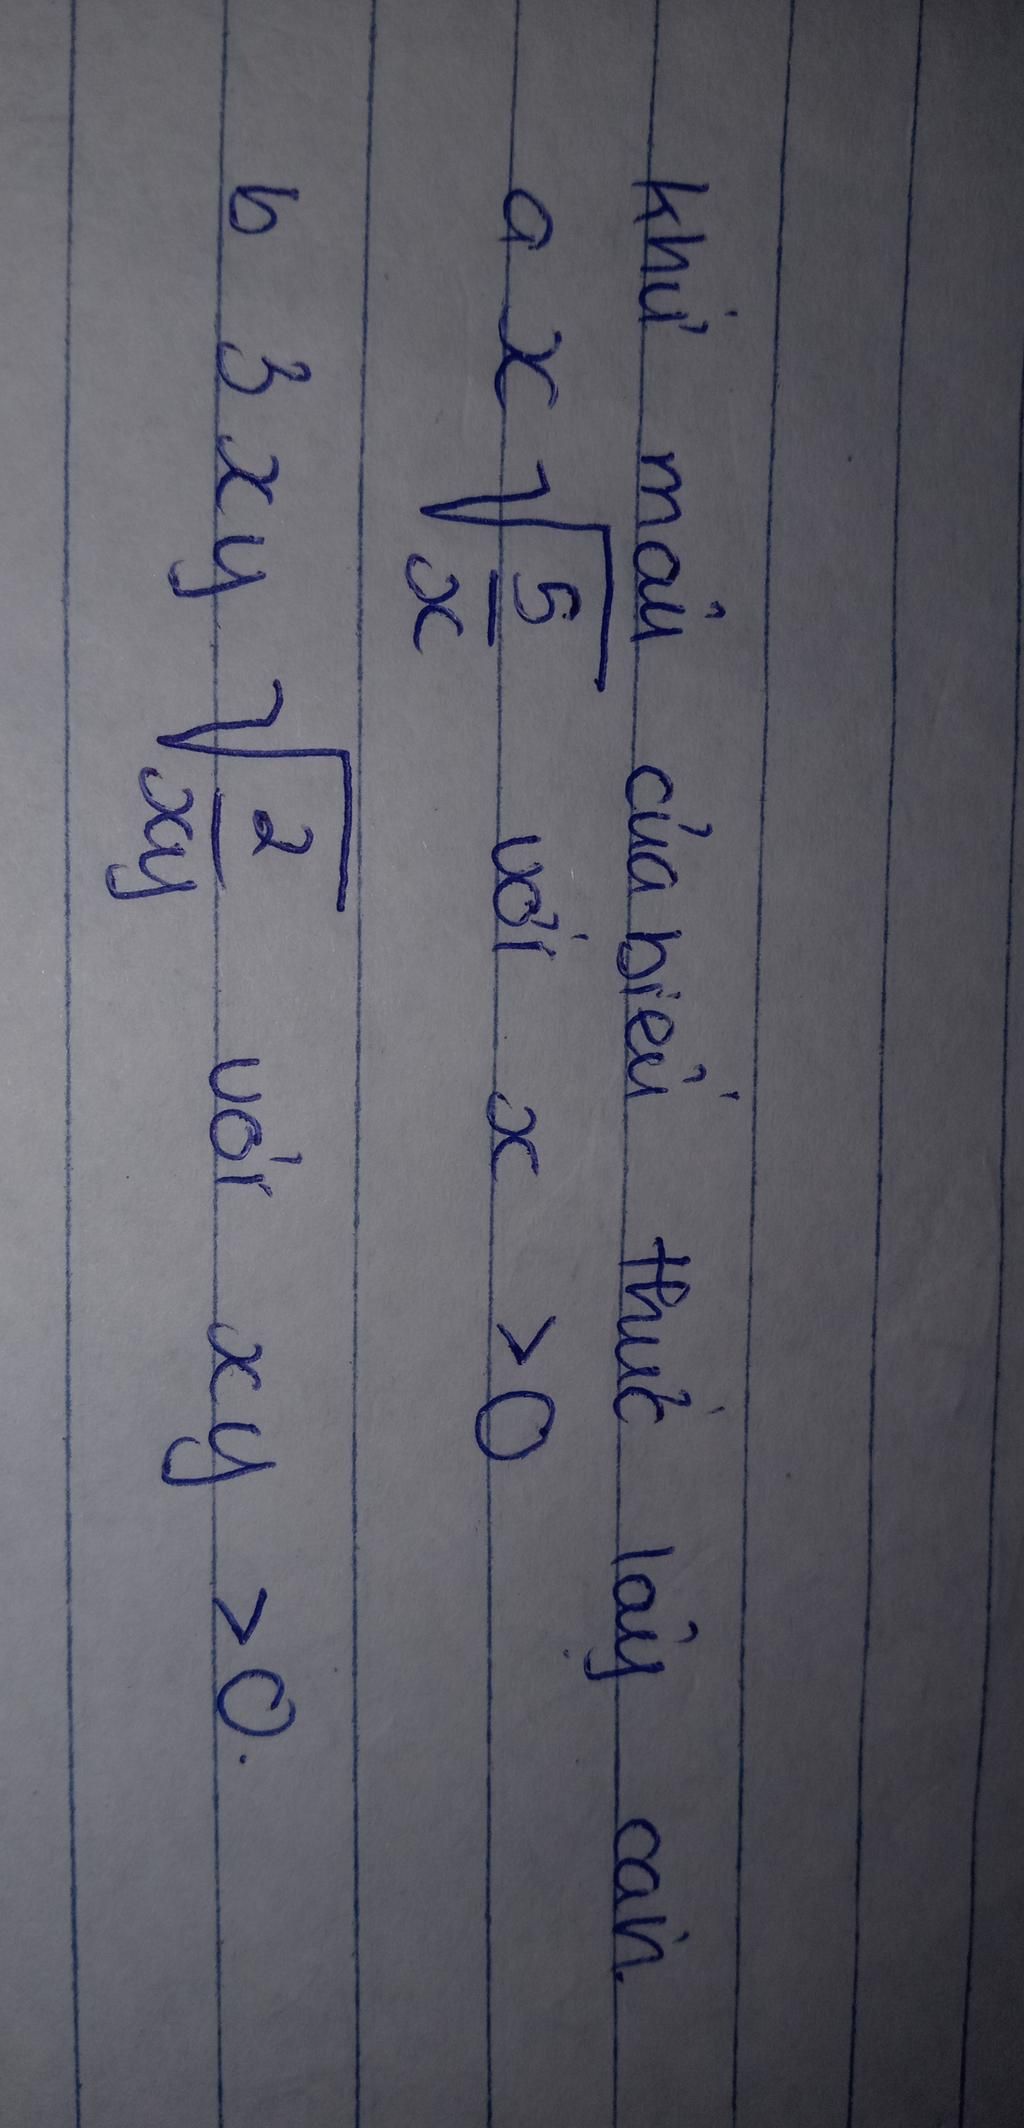 khử mẫu của biểu thức lấy căn.
a x √5/x với x >0
b 3xy √2/xy với xy >0.